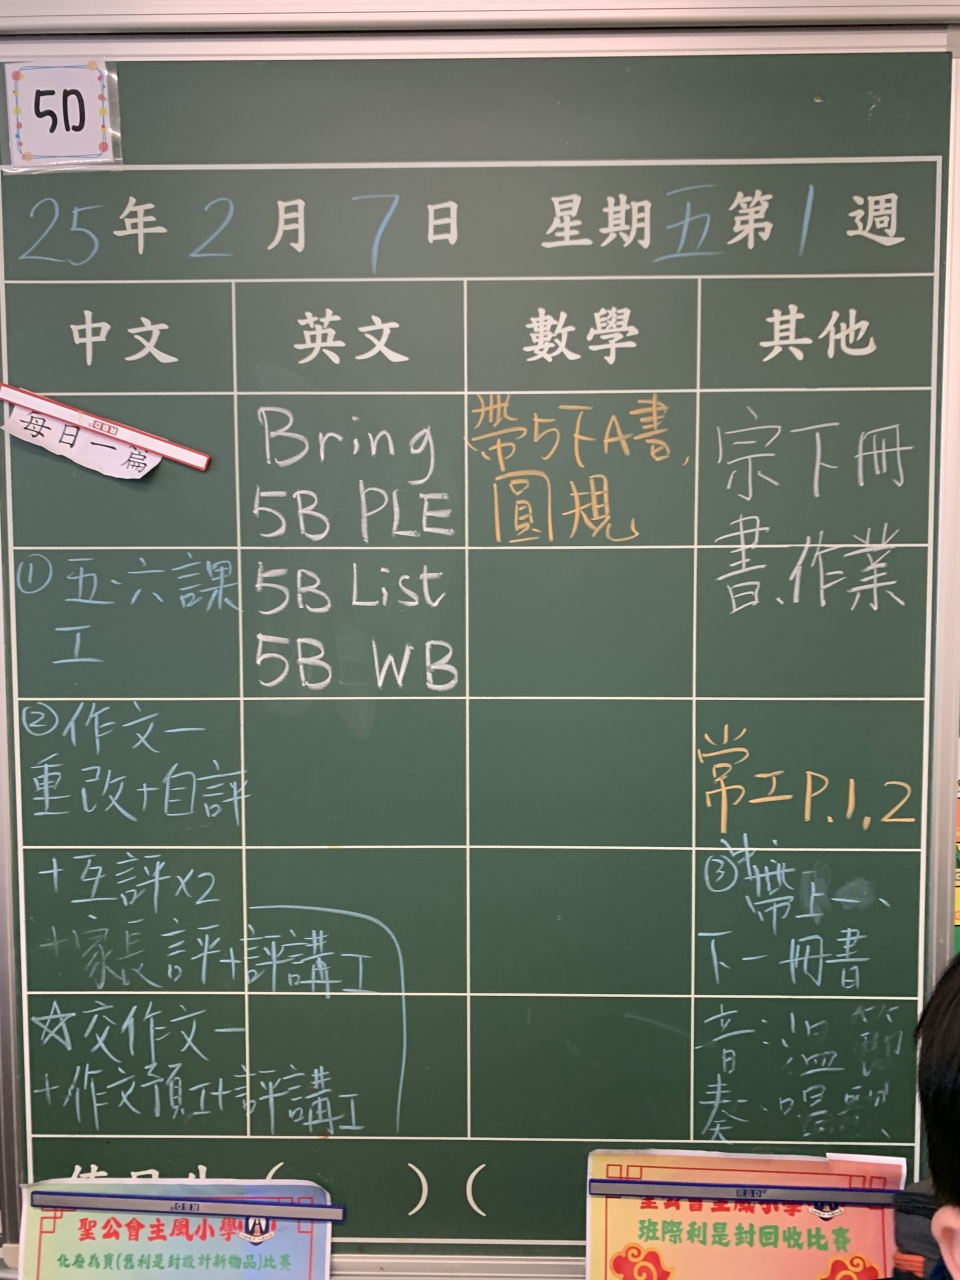 5D
25年2月7日 星期五第1週
中文 英文 數學 其他
每日一篇
①五、六課
工
②作文一
重改+自評
+互評x2
+家長評+評講工
☆交作文一
+作文預工+評講工
Bring
5B PLE
5B List
5B WB
帶5下A書,
圓規
宗下冊
書、作業
常工P.1,2
③中:帶上一、
下一冊書
音:溫節
奏、唱歌
( ) (
聖公會主風小學
化廢為寶(舊利是封設計新物品)比賽
聖公會主風小學
班際利是封回收比賽